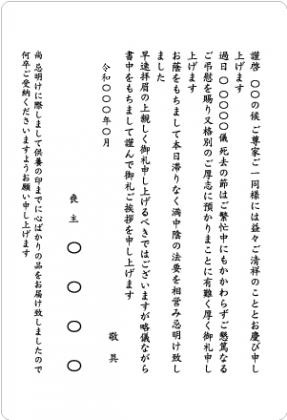 謹啓 〇〇の候 ご尊家ご一同様には益々ご清祥のこととお慶び申し
上げます
過日 〇〇〇〇〇儀 死去の節はご繁忙中にもかかわらずご懇篤なる
ご弔慰を賜り又格別のご厚志に預かりまことに有難く厚く御礼申し
上げます
お蔭をもちまして本日滞りなく満中陰の法要を相営み忌明け致し
ました
早速拝眉の上親しく御礼申し上げるべきではございますが略儀ながら
書中をもちまして謹んで御礼ご挨拶を申し上げます
敬具
令和〇〇〇年〇月
喪主 〇〇〇〇
尚 忌明けに際しまして供養の印までに心ばかりの品をお届け致しましたので
何卒ご受納くださいますようお願い申し上げます